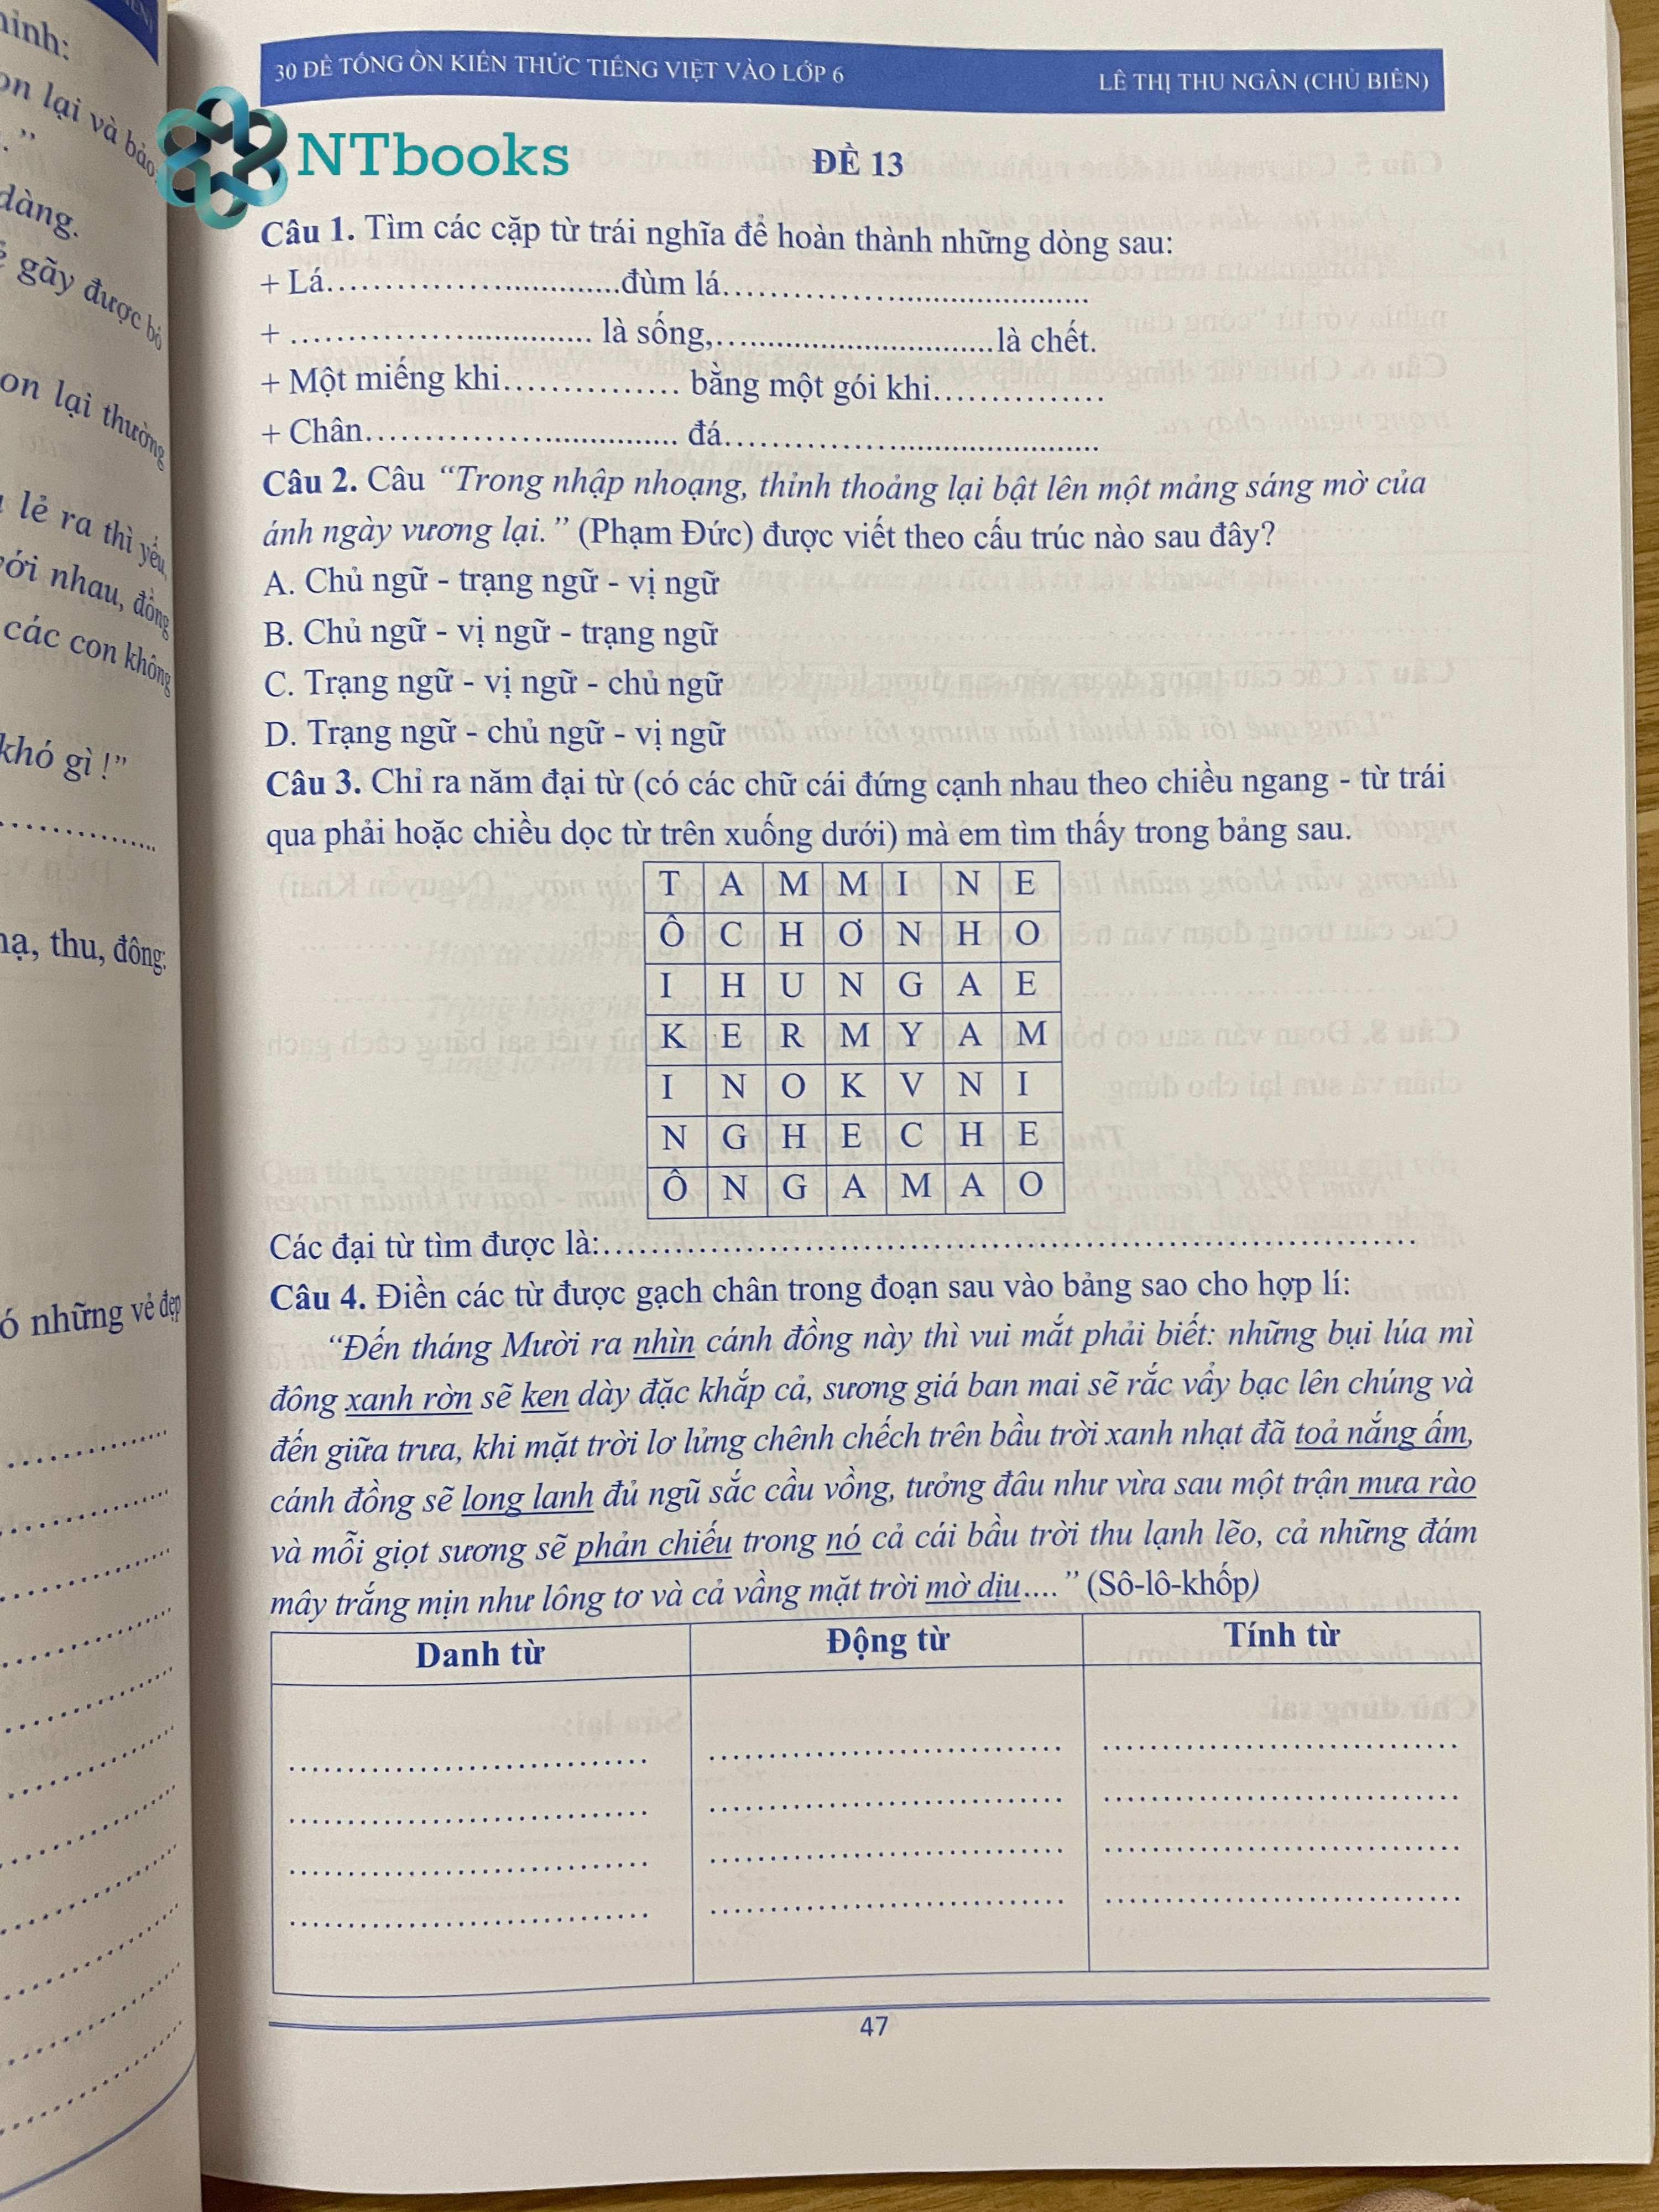 ỉnh:
on lại và bảo
dàng.
gãy được bó
on lại thường
lẻ ra thì yếu,
với nhau, đồng
các con không
khó gì !”
hạ, thu, đông:
ó những vẻ đẹp
30 ĐỀ TỔNG ÔN KIẾN THỨC TIẾNG VIỆT VÀO LỚP 6 LÊ THỊ THU NGÂN (CHỦ BIÊN)
NTbooks
ĐỀ 13
Câu 1. Tìm các cặp từ trái nghĩa để hoàn thành những dòng sau:
+ Lá..............................đùm lá..............................
+ .............................. là sống,..............................là chết.
+ Một miếng khi............... bằng một gói khi...............
+ Chân.............................. đá..............................
Câu 2. Câu “Trong nhập nhoạng, thỉnh thoảng lại bật lên một mảng sáng mờ của
ánh ngày vương lại.” (Phạm Đức) được viết theo cấu trúc nào sau đây?
A. Chủ ngữ - trạng ngữ - vị ngữ
B. Chủ ngữ - vị ngữ - trạng ngữ
C. Trạng ngữ - vị ngữ - chủ ngữ
D. Trạng ngữ - chủ ngữ - vị ngữ
Câu 3. Chỉ ra năm đại từ (có các chữ cái đứng cạnh nhau theo chiều ngang - từ trái
qua phải hoặc chiều dọc từ trên xuống dưới) mà em tìm thấy trong bảng sau.
T A M M I N E
Ô C H Ơ N H O
I H U N G A E
K E R M Y A M
I N O K V N I
N G H E C H E
Ô N G A M A O
Các đại từ tìm được là:............................................................
Câu 4. Điền các từ được gạch chân trong đoạn sau vào bảng sao cho hợp lí:
“Đến tháng Mười ra nhìn cánh đồng này thì vui mắt phải biết: những bụi lúa mì
đông xanh rờn sẽ ken dày đặc khắp cả, sương giá ban mai sẽ rắc vẩy bạc lên chúng và
đến giữa trưa, khi mặt trời lơ lửng chênh chếch trên bầu trời xanh nhạt đã toả nắng ấm,
cánh đồng sẽ long lanh đủ ngũ sắc cầu vồng, tưởng đâu như vừa sau một trận mưa rào
và mỗi giọt sương sẽ phản chiếu trong nó cả cái bầu trời thu lạnh lẽo, cả những đám
mây trắng mịn như lông tơ và cả vầng mặt trời mờ dịu....” (Sô-lô-khốp)
Danh từ Động từ Tính từ
47